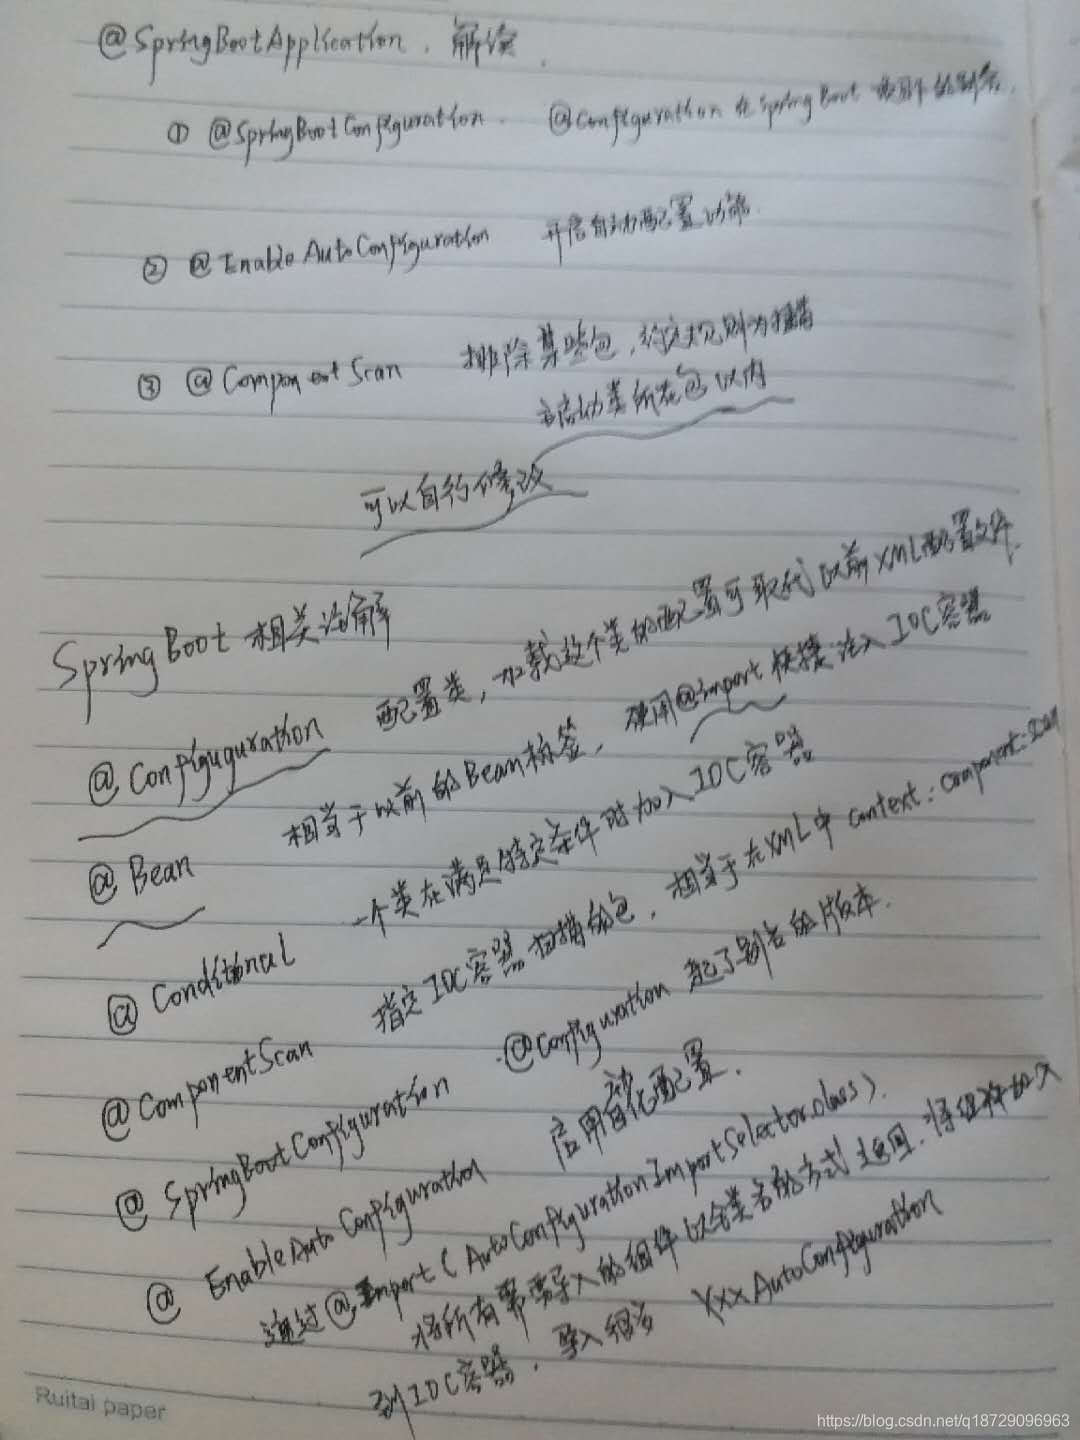 @SpringBootApplication. 解读.
① @SpringBootConfiguration. @Configuration 在Spring Boot 项目下的别名.
② @EnableAutoConfiguration 开启自动配置功能.
③ @ComponentScan 排除某些包,约定规则为扫描
主启动类所在包以内
可以自行修改
SpringBoot 相关注解
@Configuguration 配置类,加载这个类的配置可取代以前XML配置文件.
@Bean 相当于以前的Bean标签,使用@import 快捷注入IOC容器
@Conditional 一个类在满足特定条件时加入IOC容器
@ComponentScan 指定IOC容器扫描的包,相当于在XML中 context:component:scan
@SpringBootConfiguration .@Configuration 起了别名的版本.
@EnableAutoConfiguration 启用自动化配置.
通过@Import(AutoConfigurationImportSelector.class).
将所有需要导入的组件以全类名的方式返回.将组件加入
到IOC容器,导入很多 XxxAutoConfiguration
Ruitai paper
https://blog.csdn.net/q18729096963